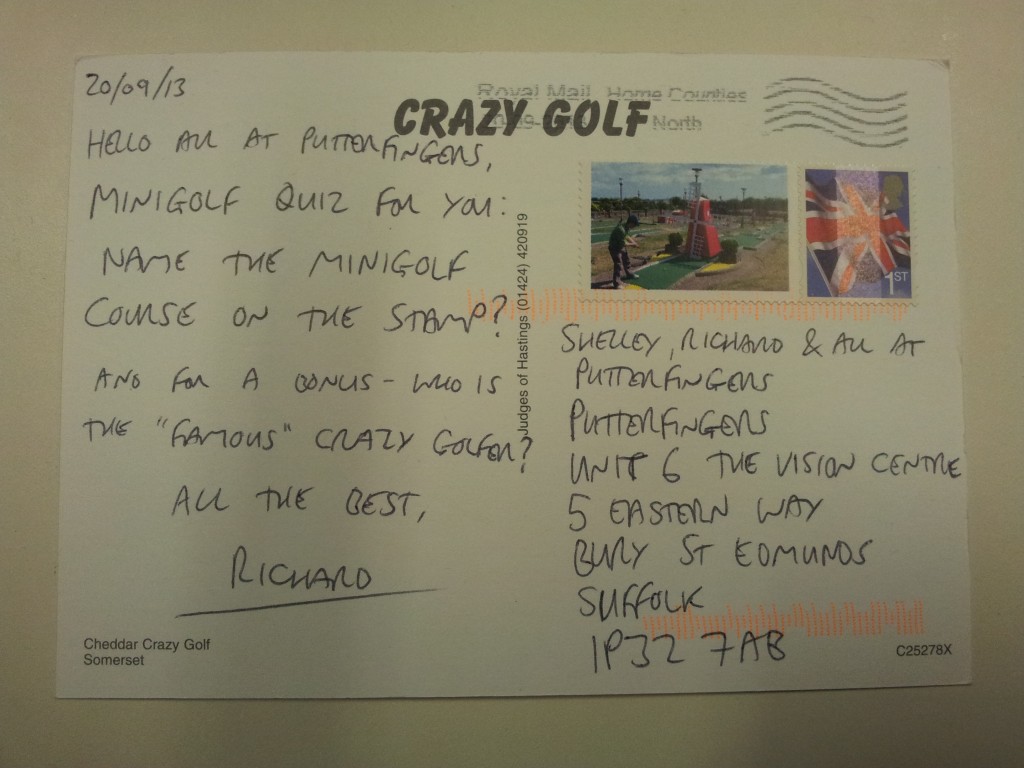 20/09/13
Royal Mail Home Counties
North
CRAZY GOLF
HELLO ALL AT PUTTERFINGERS,
MINIGOLF QUIZ FOR YOU:
NAME THE MINIGOLF
COURSE ON THE STAMP?
AND FOR A BONUS - WHO IS
THE "FAMOUS" CRAZY GOLFER?
ALL THE BEST,
RICHARD
Cheddar Crazy Golf
Somerset
Judges of Hastings (01424) 420919
1ST
SHELLEY, RICHARD & ALL AT
PUTTERFINGERS
PUTTERFINGERS
UNIT 6 THE VISION CENTRE
5 EASTERN WAY
BURY ST EDMUNDS
SUFFOLK
IP32 7AB
C25278X